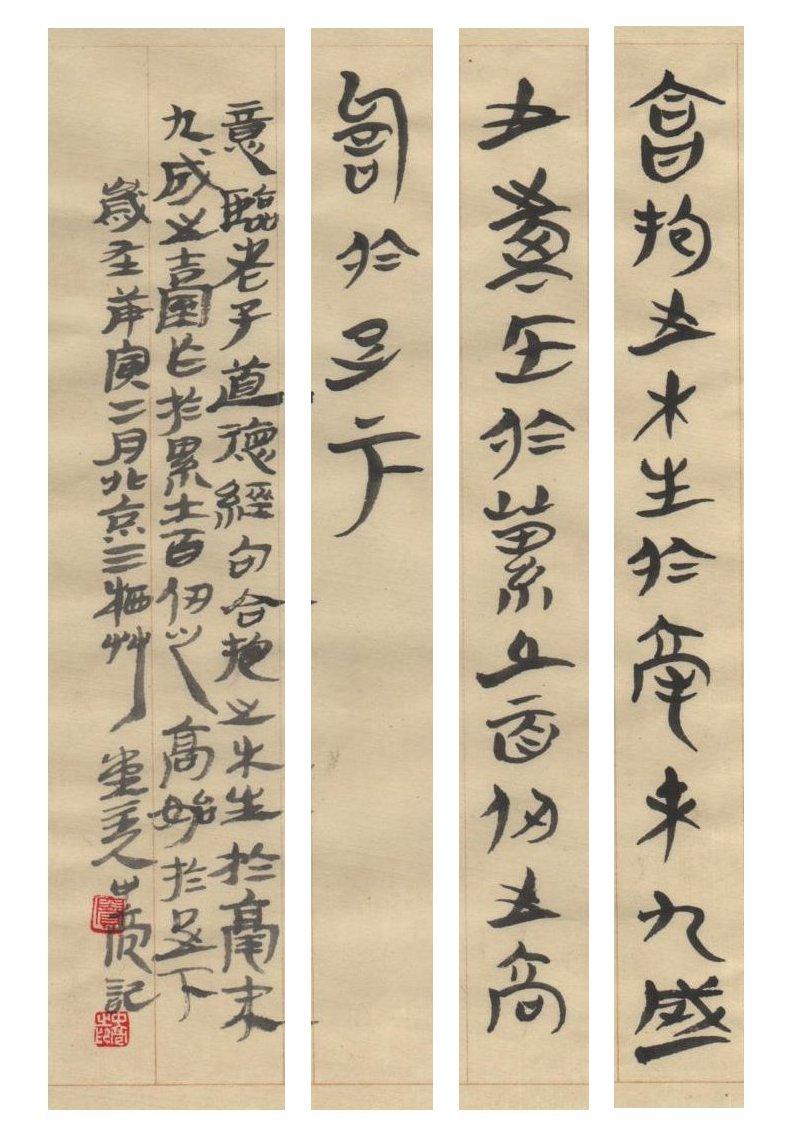 合抱之木生於毫末九成
之臺作於累土百仞之高
始於足下
意臨老子道德經句合抱之木生於毫末
九成之臺作於累土百仞之高始於足下
歲在庚寅二月北京三牺艸堂主人記